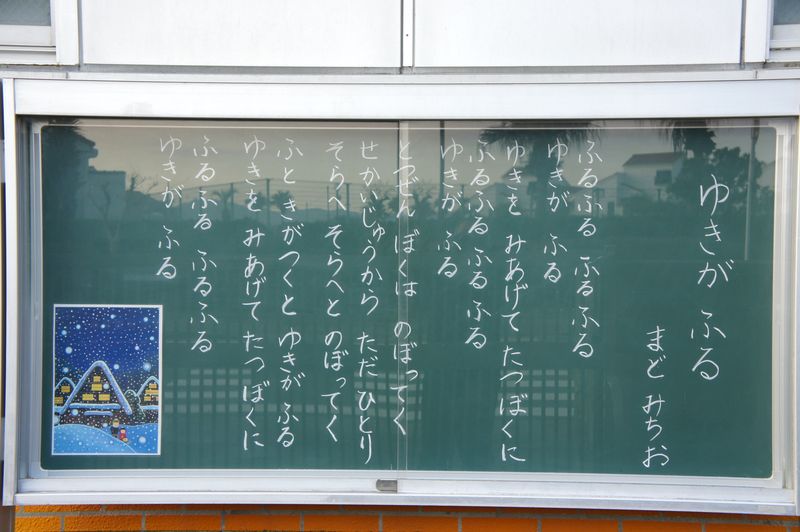 ゆきが ふる
まど みちお
ふるふる ふるふる
ゆきが ふる
ゆきを みあげて たつぼくに
ふるふる ふるふる
ゆきが ふる
とつぜん ぼくは のぼってく
せかいじゅうから ただ ひとり
そらへ そらへと のぼってく
ふと きがつくと ゆきが ふる
ゆきを みあげて たつぼくに
ふるふる ふるふる
ゆきが ふる